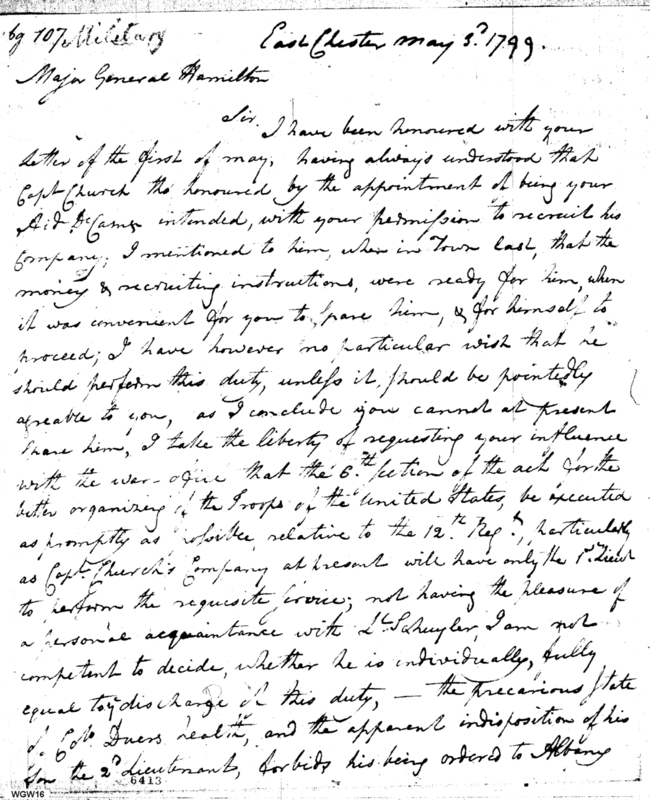 bg 107 Military East Chester May 3d. 1799.
Major General Hamilton
Sir.
I have been honoured with your
letter of the first of may, having always understood that
Capt Church tho honoured by the appointment of being your
Aid De Camp intended, with your permission to recruit his
Company; I mentioned to him, when in Town last, that the
money & recruiting instructions, were ready for him, when
it was convenient for you to spare him, & for himself to
proceed; I have however no particular wish that he
should perform this duty, unless it should be pointedly
agreable to you, as I conclude you cannot at present
spare him, I take the liberty of requesting your influence
with the war-office that the 6.th section of the act for the
better organizing of the Troops of the United States, be executed
as promptly as possible, relative to the 12.th Regt., particularly
as Capt. Church's Company at present will have only the 1st Lieut
to perform the requisite service; not having the pleasure of
a personal acquaintance with Lt. Schuyler, I am not
competent to decide, whether he is individually, fully
equal to ye discharge of this duty, — the precarious state
of Colo Duers health, and the apparent indisposition of his
son the 2d Lieutenant, forbids his being ordered to Albany
6413
WGW16